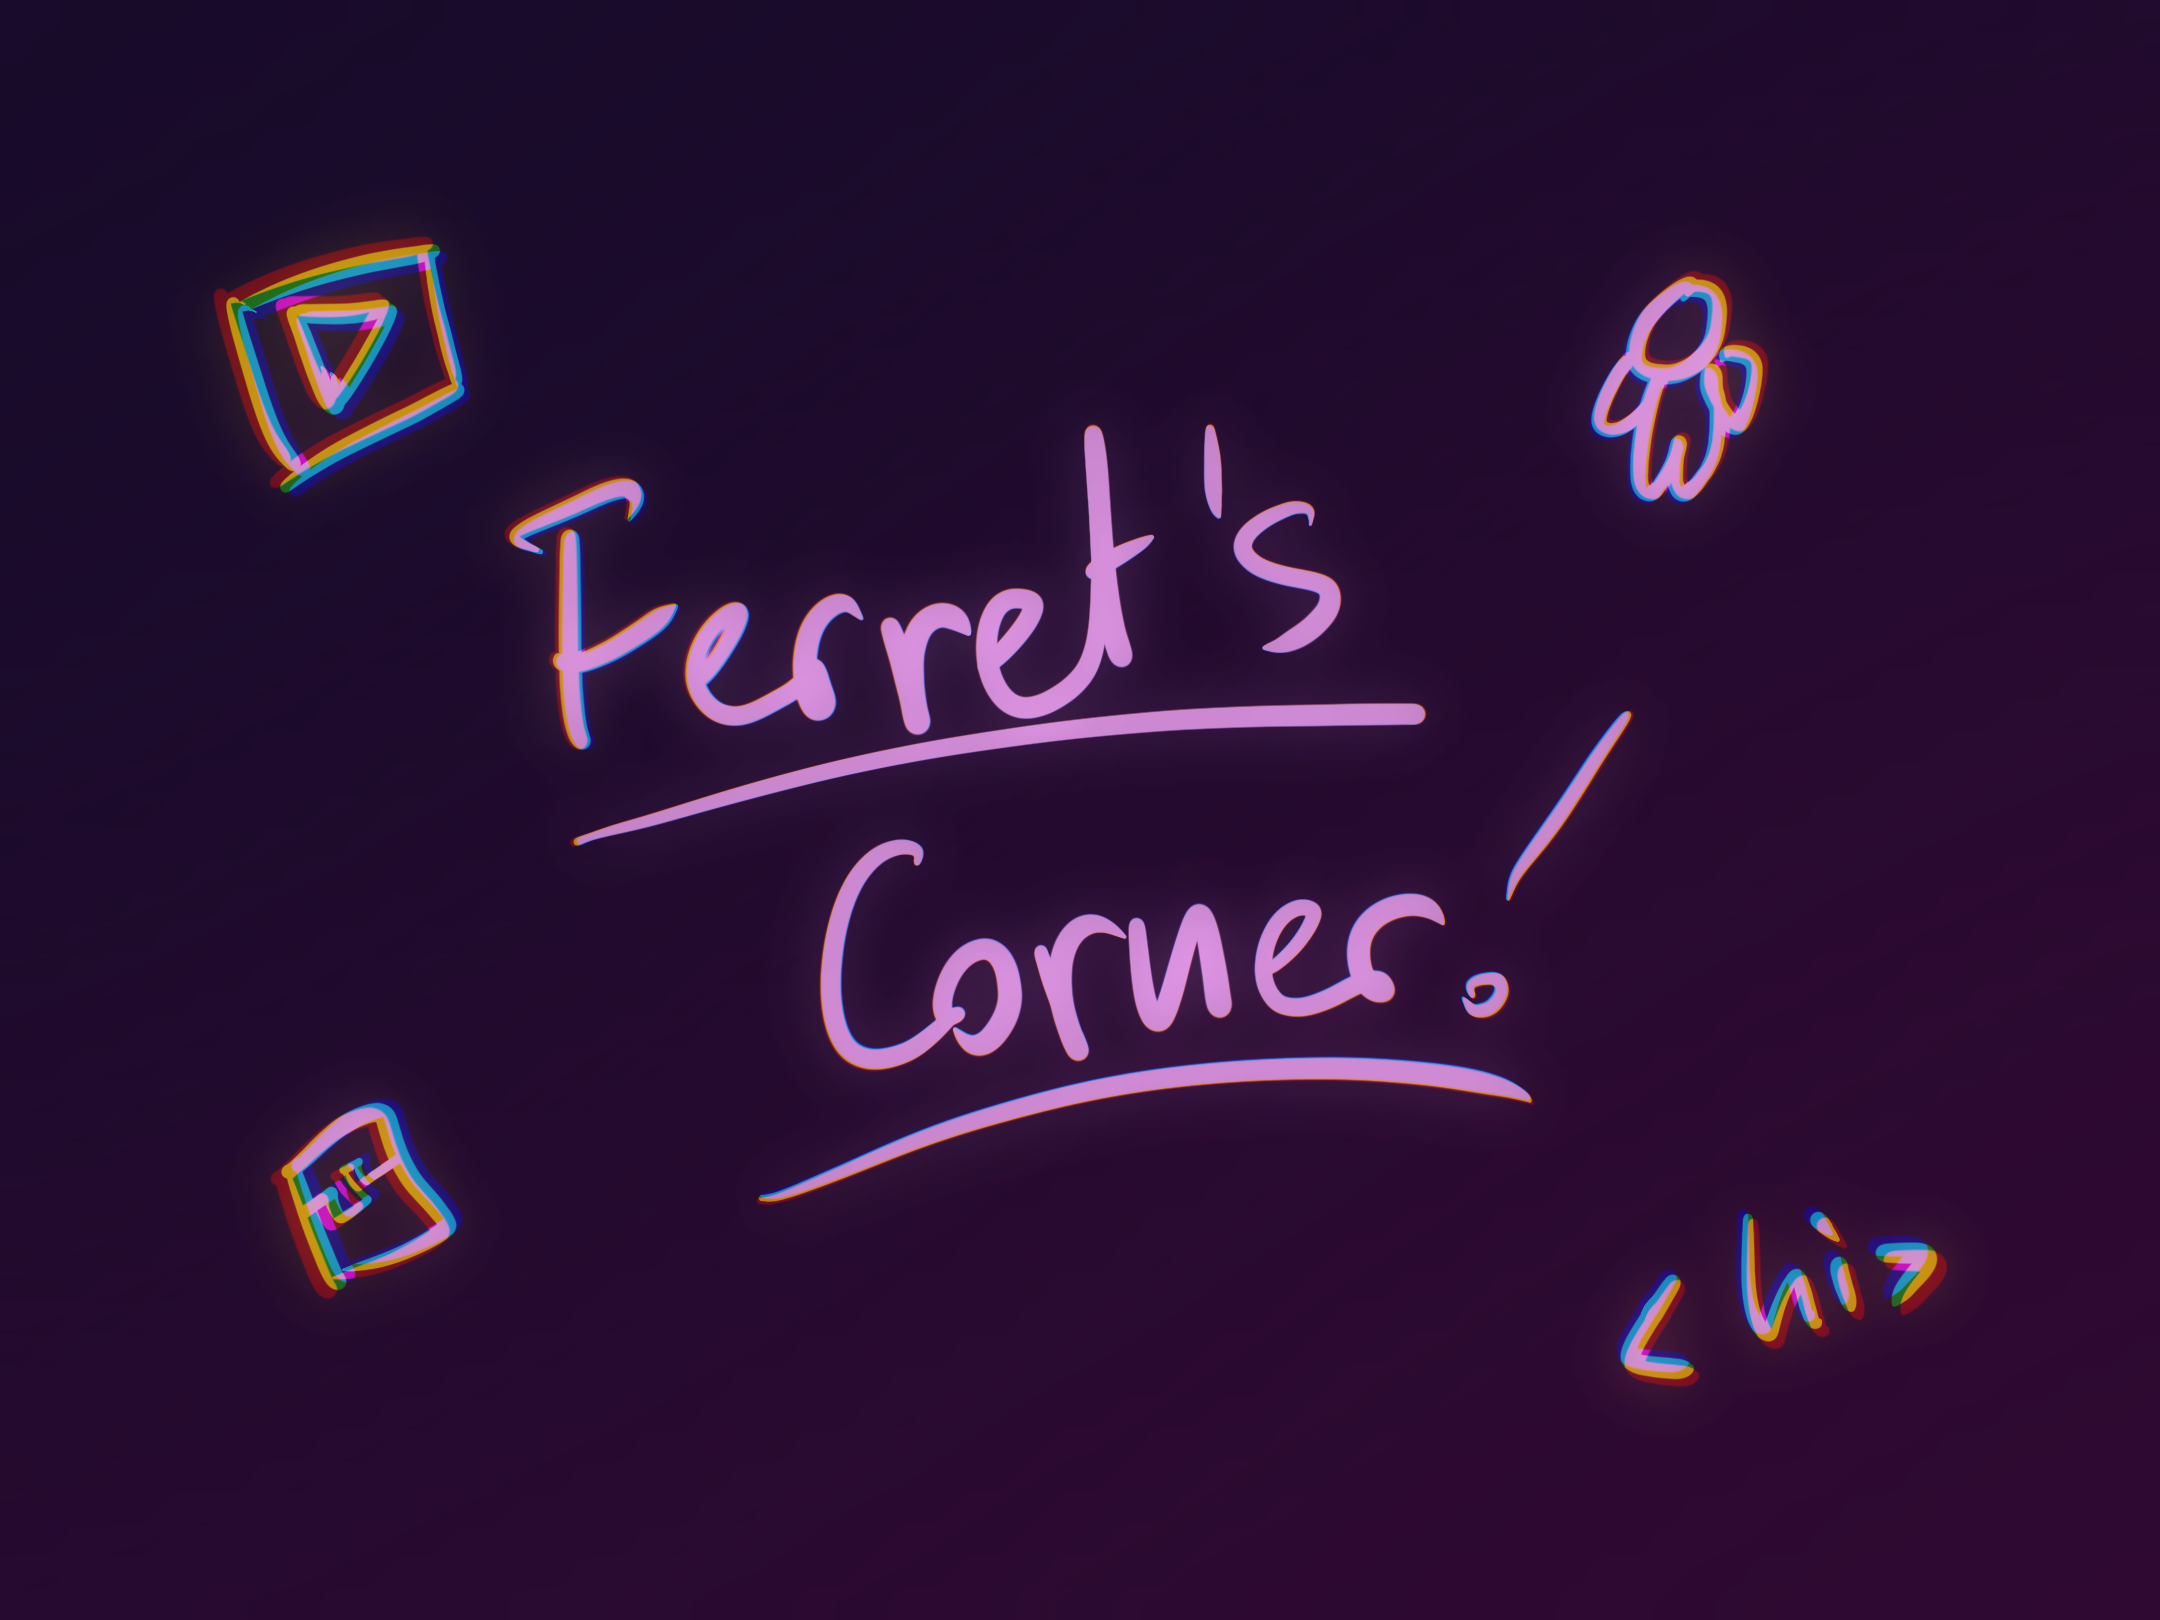 Ferret's
Corner!
<hi>